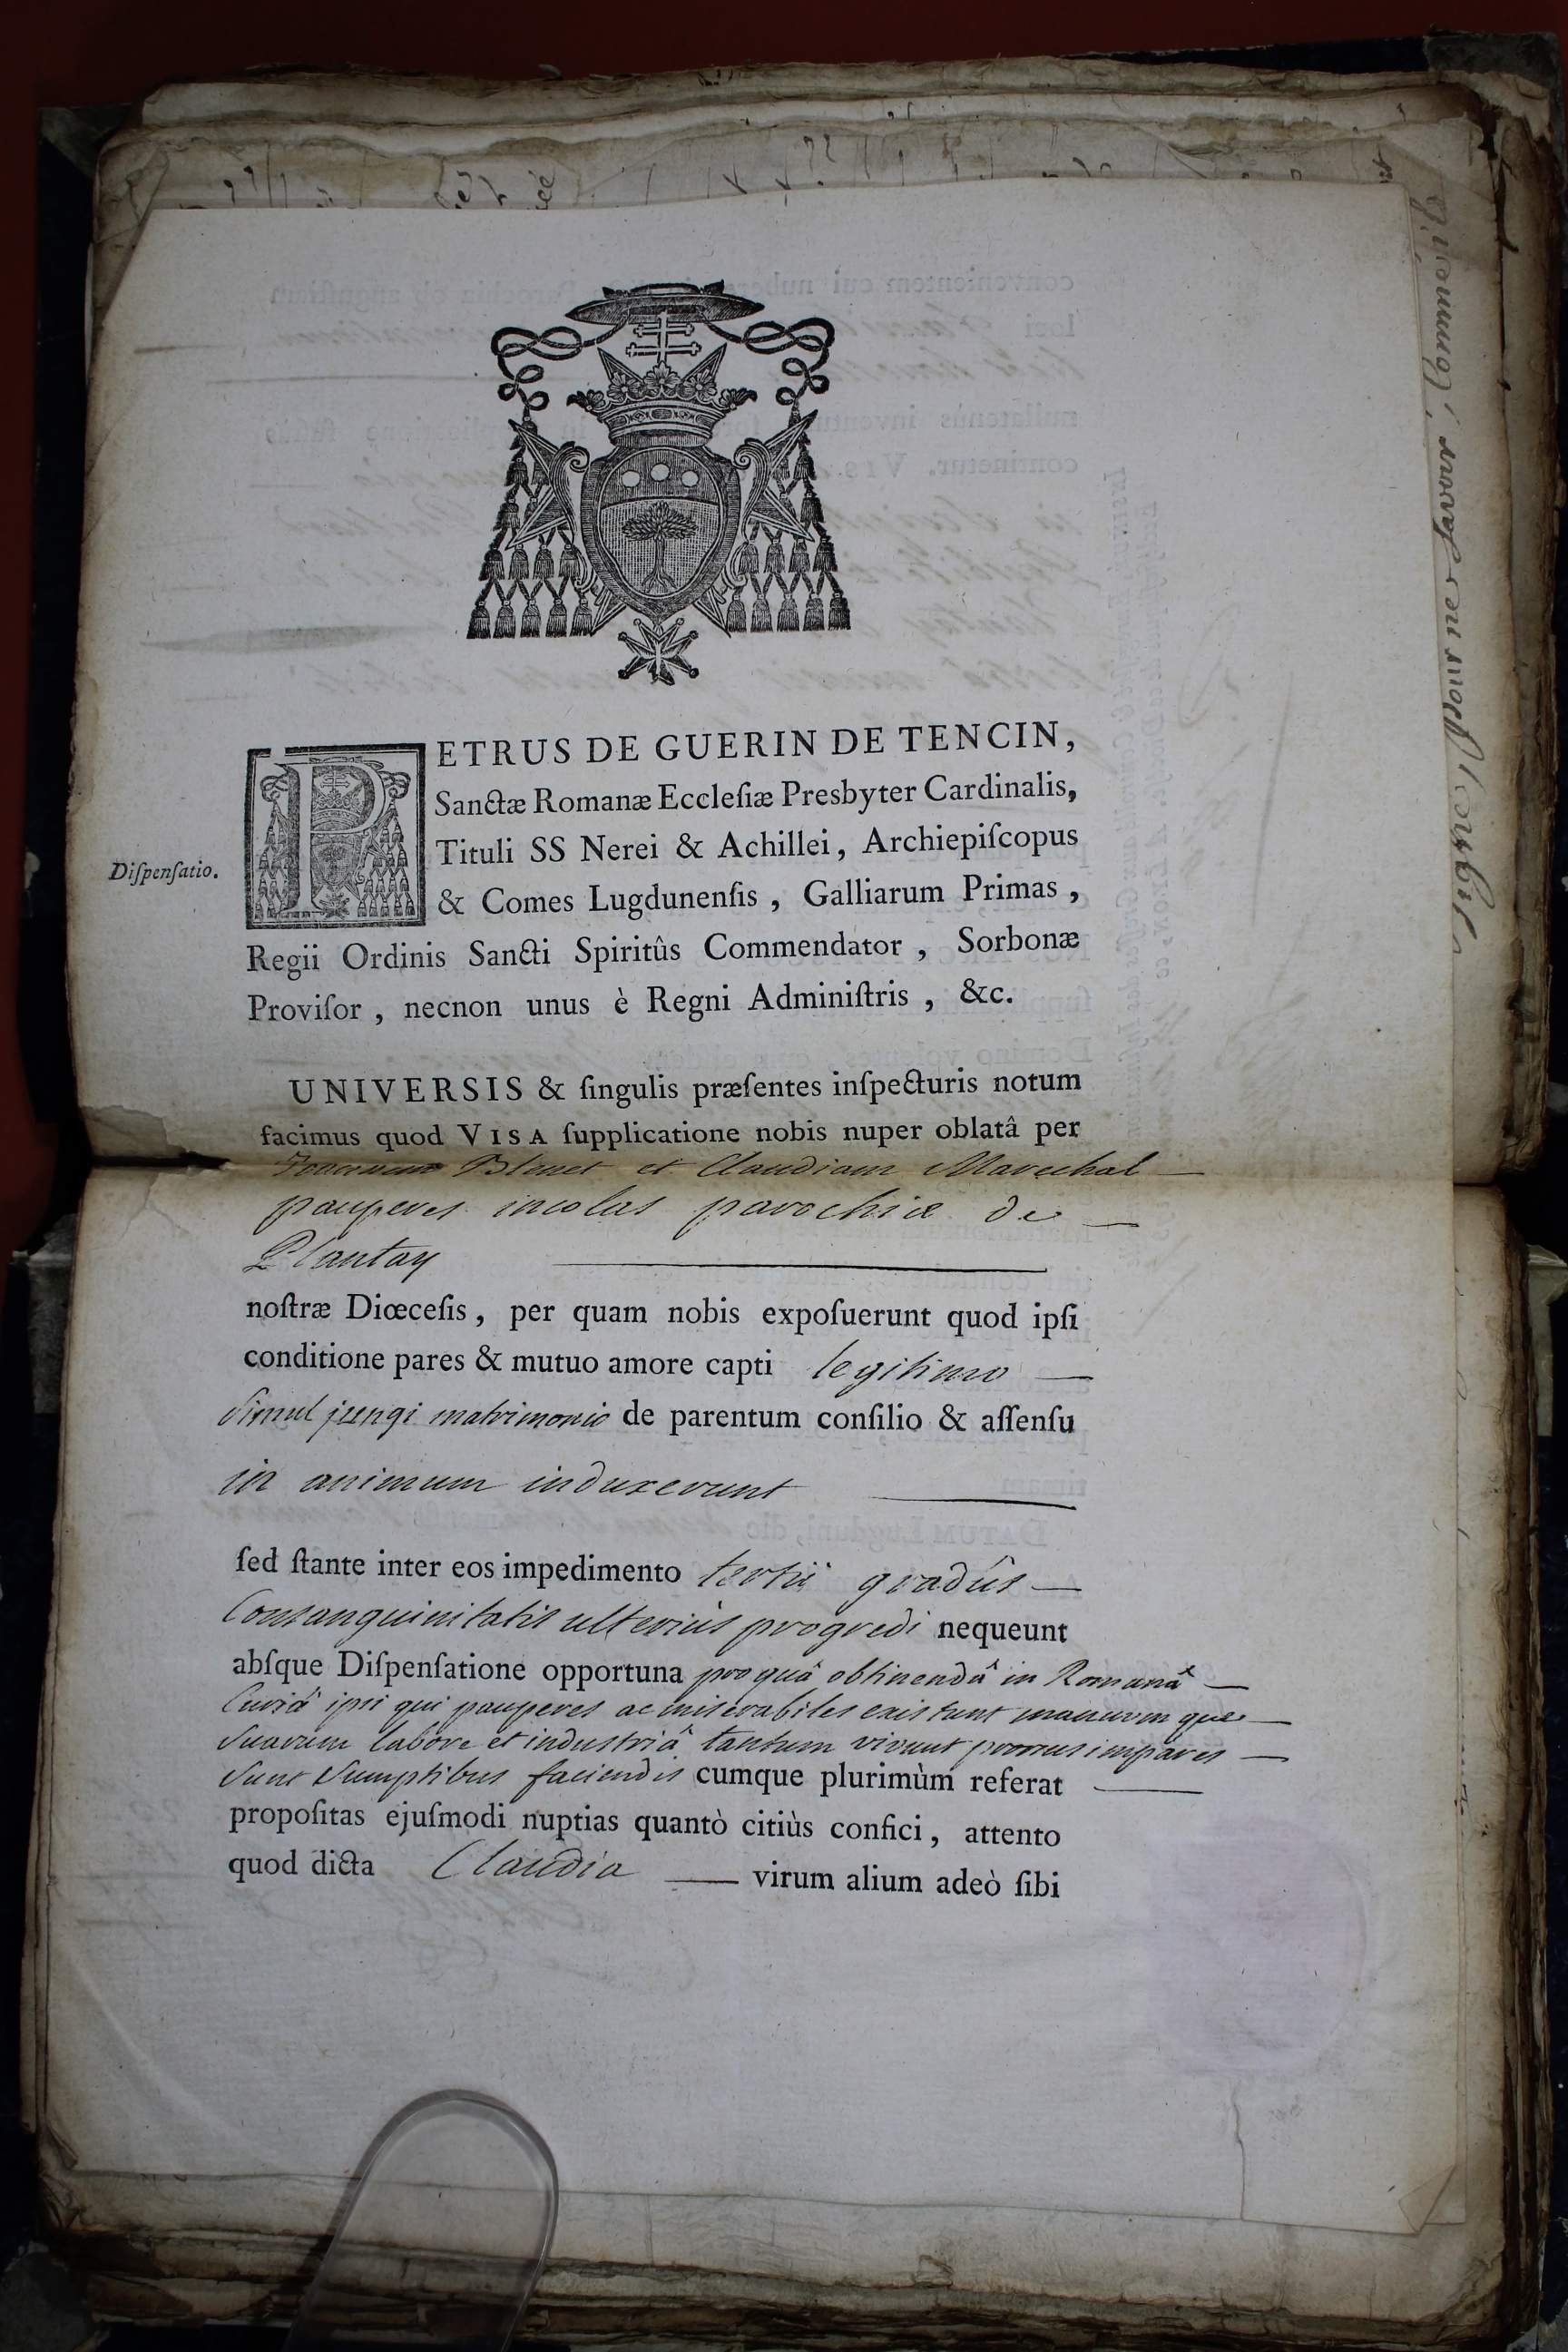 Dispensatio.
PETRUS DE GUERIN DE TENCIN,
Sanctæ Romanæ Eccleſiæ Presbyter Cardinalis,
Tituli SS Nerei & Achillei, Archiepiſcopus
& Comes Lugdunenſis, Galliarum Primas,
Regii Ordinis Sancti Spiritûs Commendator, Sorbonæ
Proviſor, necnon unus è Regni Adminiſtris, &c.
UNIVERSIS & ſingulis præſentes inſpecturis notum
facimus quod VISA ſupplicatione nobis nuper oblatâ per
et Claudiam Marechal
pauperes incolas parochiæ de
Plantay
noſtræ Diœceſis, per quam nobis expoſuerunt quod ipſi
conditione pares & mutuo amore capti legitimo
simul jungi matrimonio de parentum conſilio & aſſenſu
in animum induxerunt
ſed ſtante inter eos impedimento tertii gradûs
Consanguinitatis ulteriùs progredi nequeunt
abſque Diſpenſatione opportuna pro quâ obtinendâ in Romanâ
Curiâ ipsi qui pauperes ac miserabiles existunt manuum que
suarum labore et industriâ tantum vivunt prorsus impares
sunt sumptibus faciendis cumque plurimùm referat
propoſitas ejuſmodi nuptias quantò citiùs confici, attento
quod dicta Claudia virum alium adeò ſibi
pour ne savoir